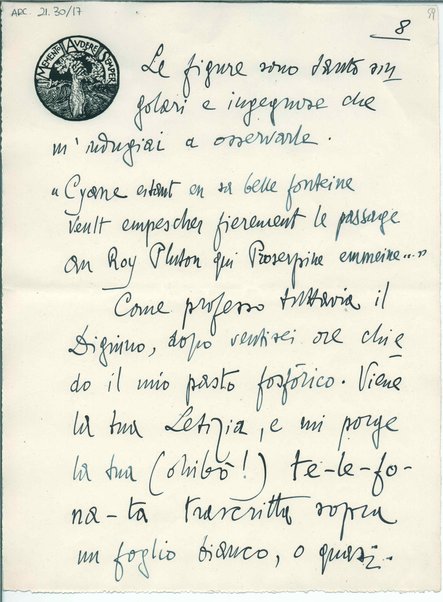 ARC. 21.30/17
8
59
MEMENTO AUDERE SEMPER
Le figure sono tanto sin
golari e ingegnose che
m'indugiai a osservarle.
"Cyane estant en sa belle fonteine
Veult empescher fierement le passage
Au Roy Pluton qui Proserpine emmeine...."
Come professo tuttavia il
Digiuno, dopo ventisei ore chie
do il mio pasto fosfòrico. Viene
la tua Letizia, e mi porge
la tua (ohibò!) te-le-fo-
na-ta trascritta sopra
un foglio bianco, o quasi.